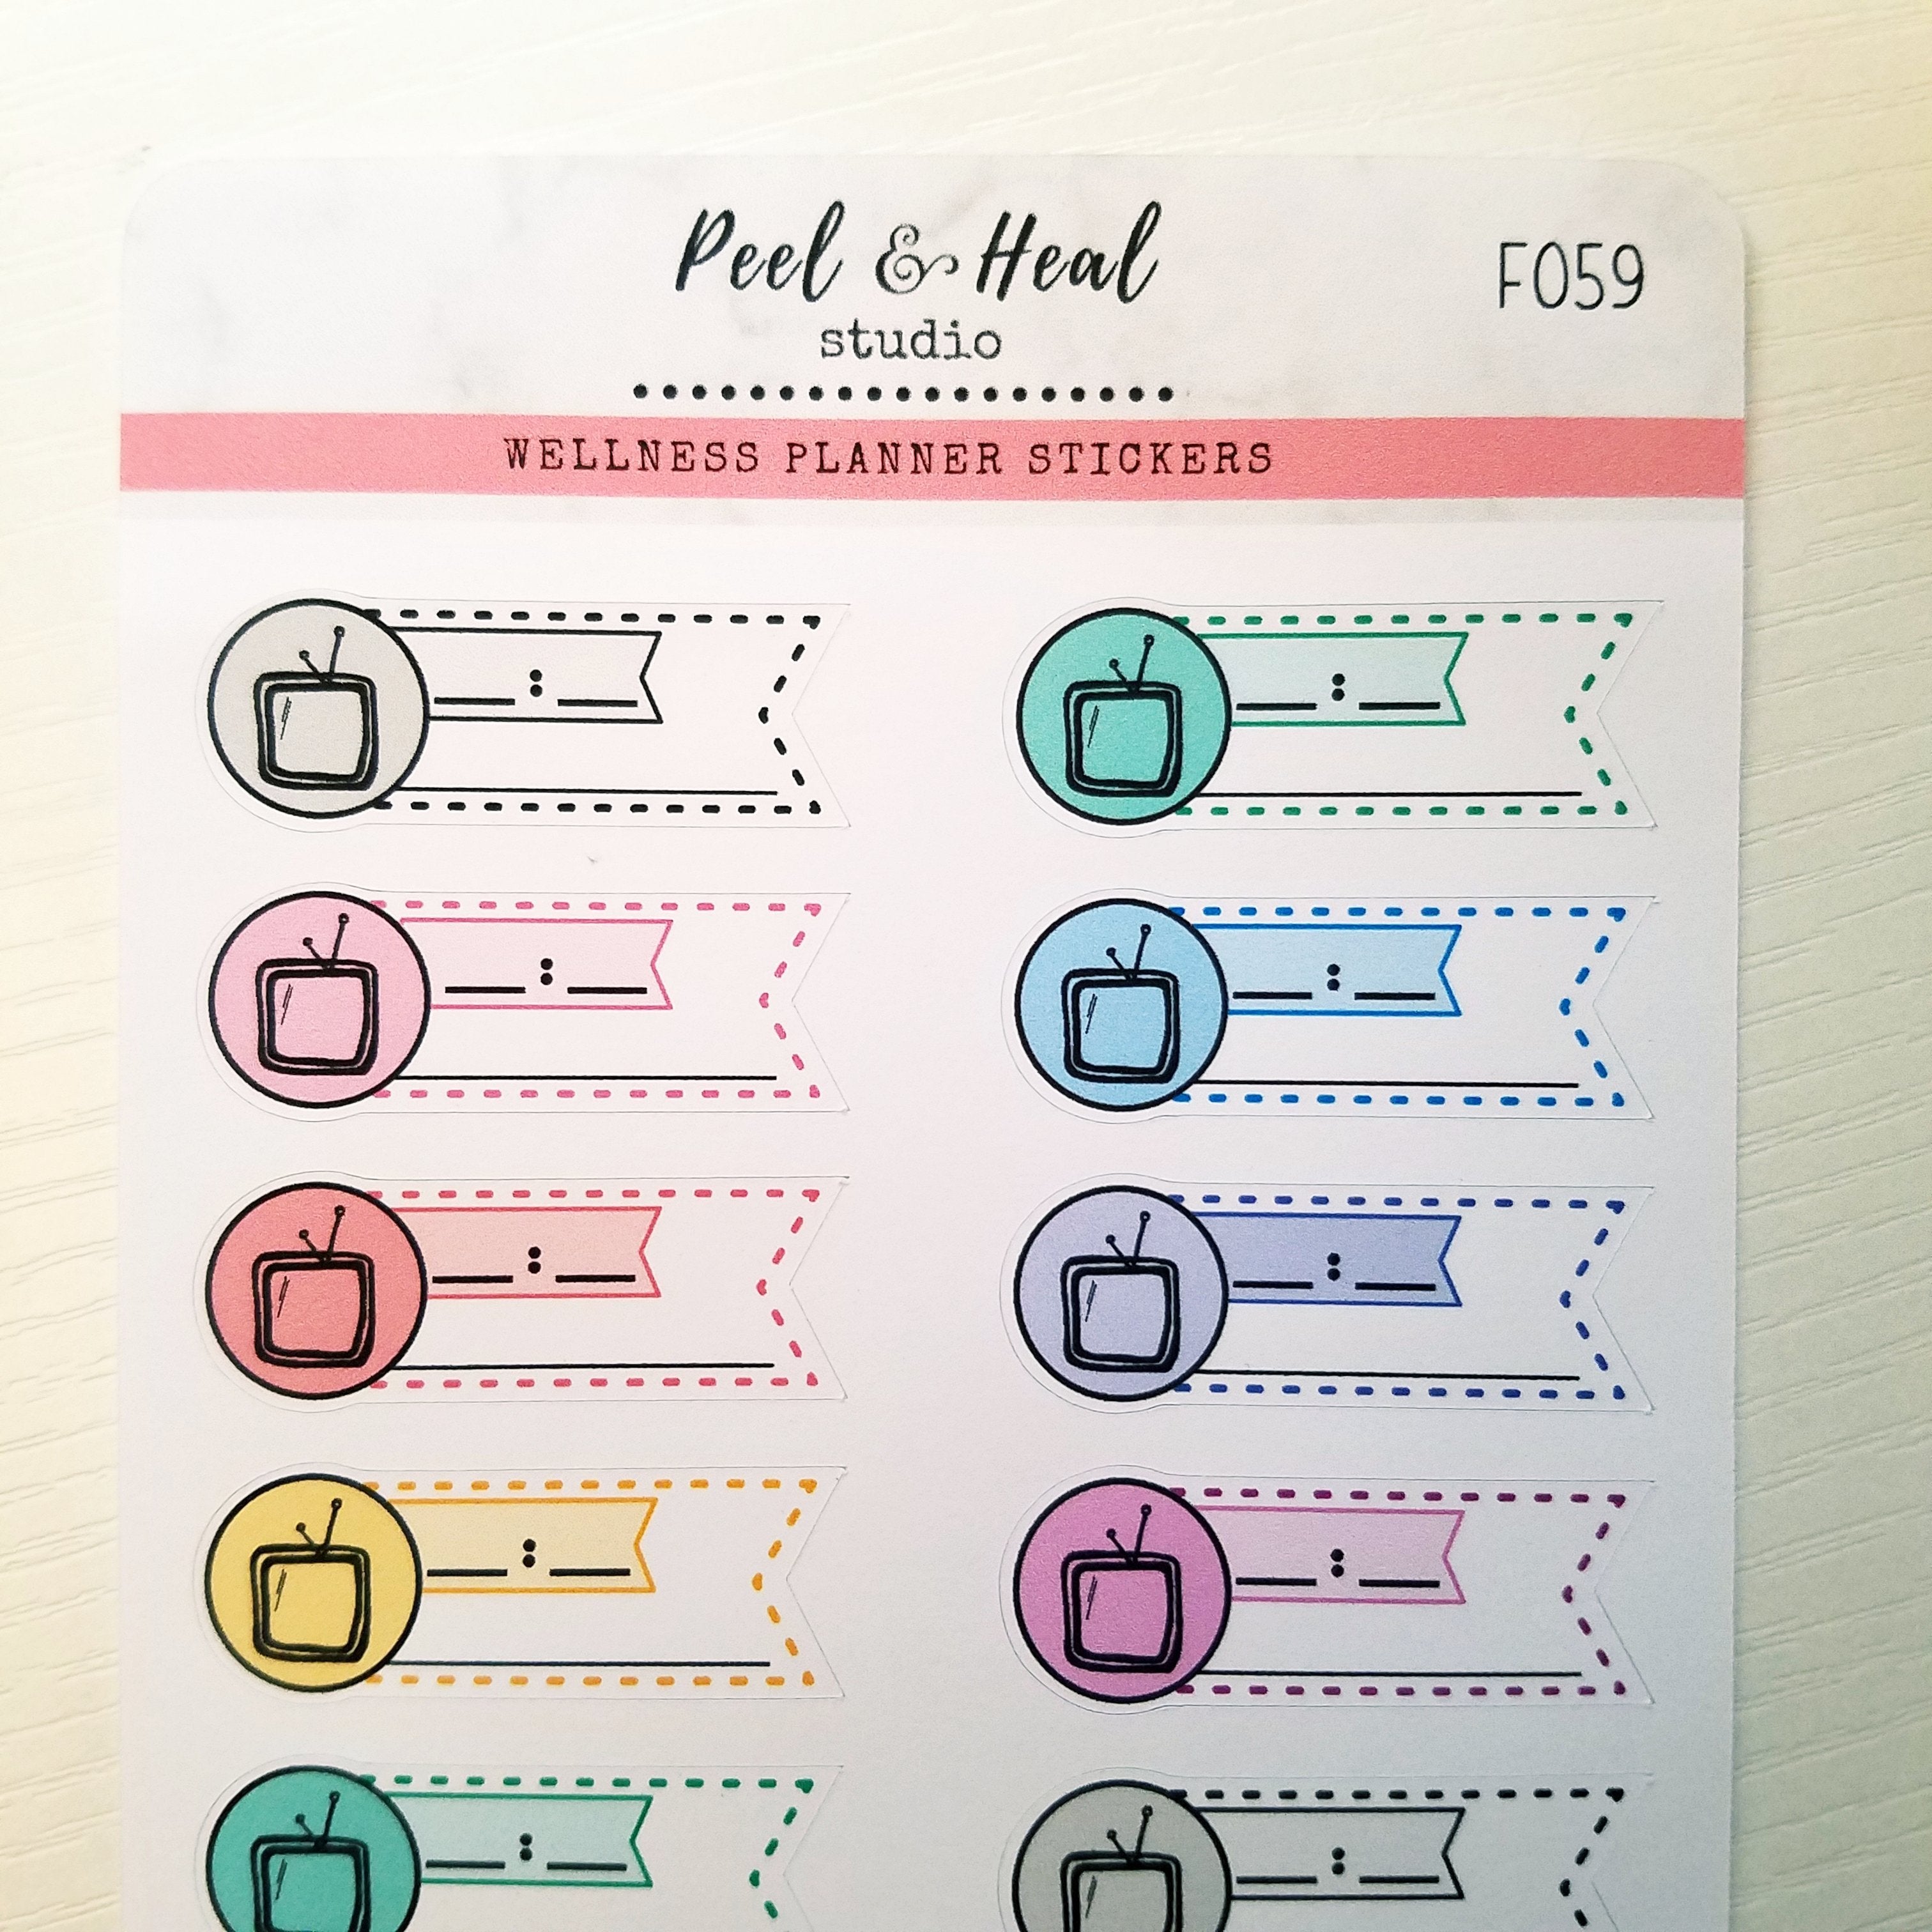 Peel & Heal
studio
F059
WELLNESS PLANNER STICKERS